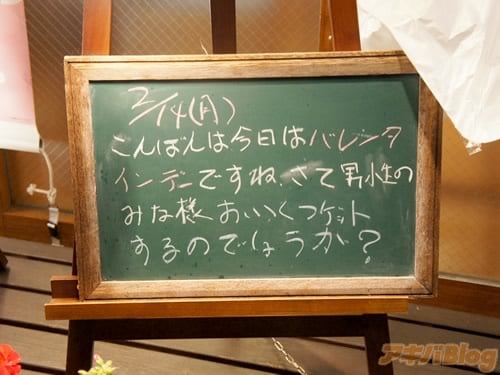 2/14(月)
こんばんは今日はバレンタ
インデーですね、さて男性の
みな様おいくつゲット
するのでしょうか?
アキバBlog